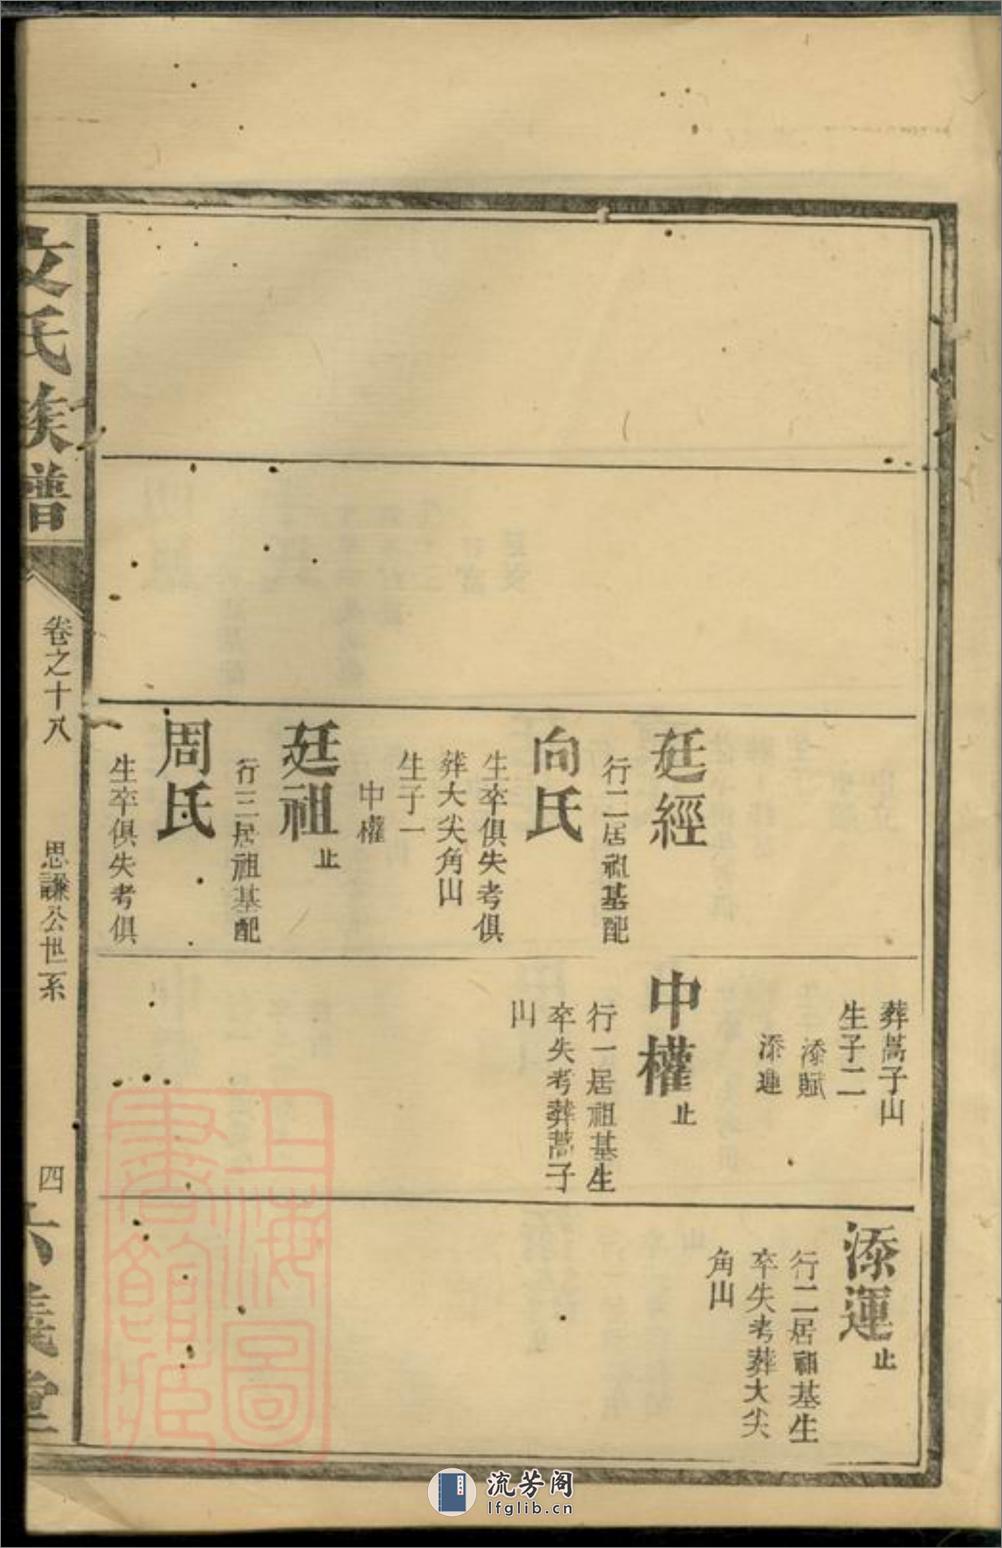 廷經
行二居祖基配
向氏
生卒俱失考俱
葬大尖角山
生子一
中權
廷祖止
行三居祖基配
周氏
生卒俱失考俱
葬蒿子山
生子二
添賦
添運
中權止
行一居祖基生
卒失考葬蒿子
山
添運止
行二居祖基生
卒失考葬大尖
角山
文氏族譜
卷之十八
思謙公世系
四
六義堂
上海圖
書館藏
流芳阁
lfglib.cn